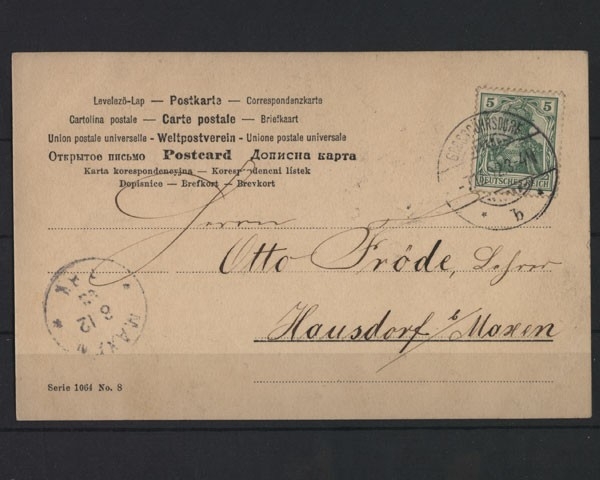 Levelező-Lap — Postkarte — Correspondenzkarte
Cartolina postale — Carte postale — Briefkaart
Union postale universelle — Weltpostverein — Unione postale universale
Открытое письмо Postcard Дописна карта
Karta korespondencyjna — Korespondencni listek
Dopisnice — Brefkort — Brevkort
5 5
DEUTSCHES REICH
GROSSRÖHRSDORF
b
Herrn
Otto Fröde, Lehrer
Hausdorf b Maxen
MAXEN
8 12
Serie 1064 No. 8